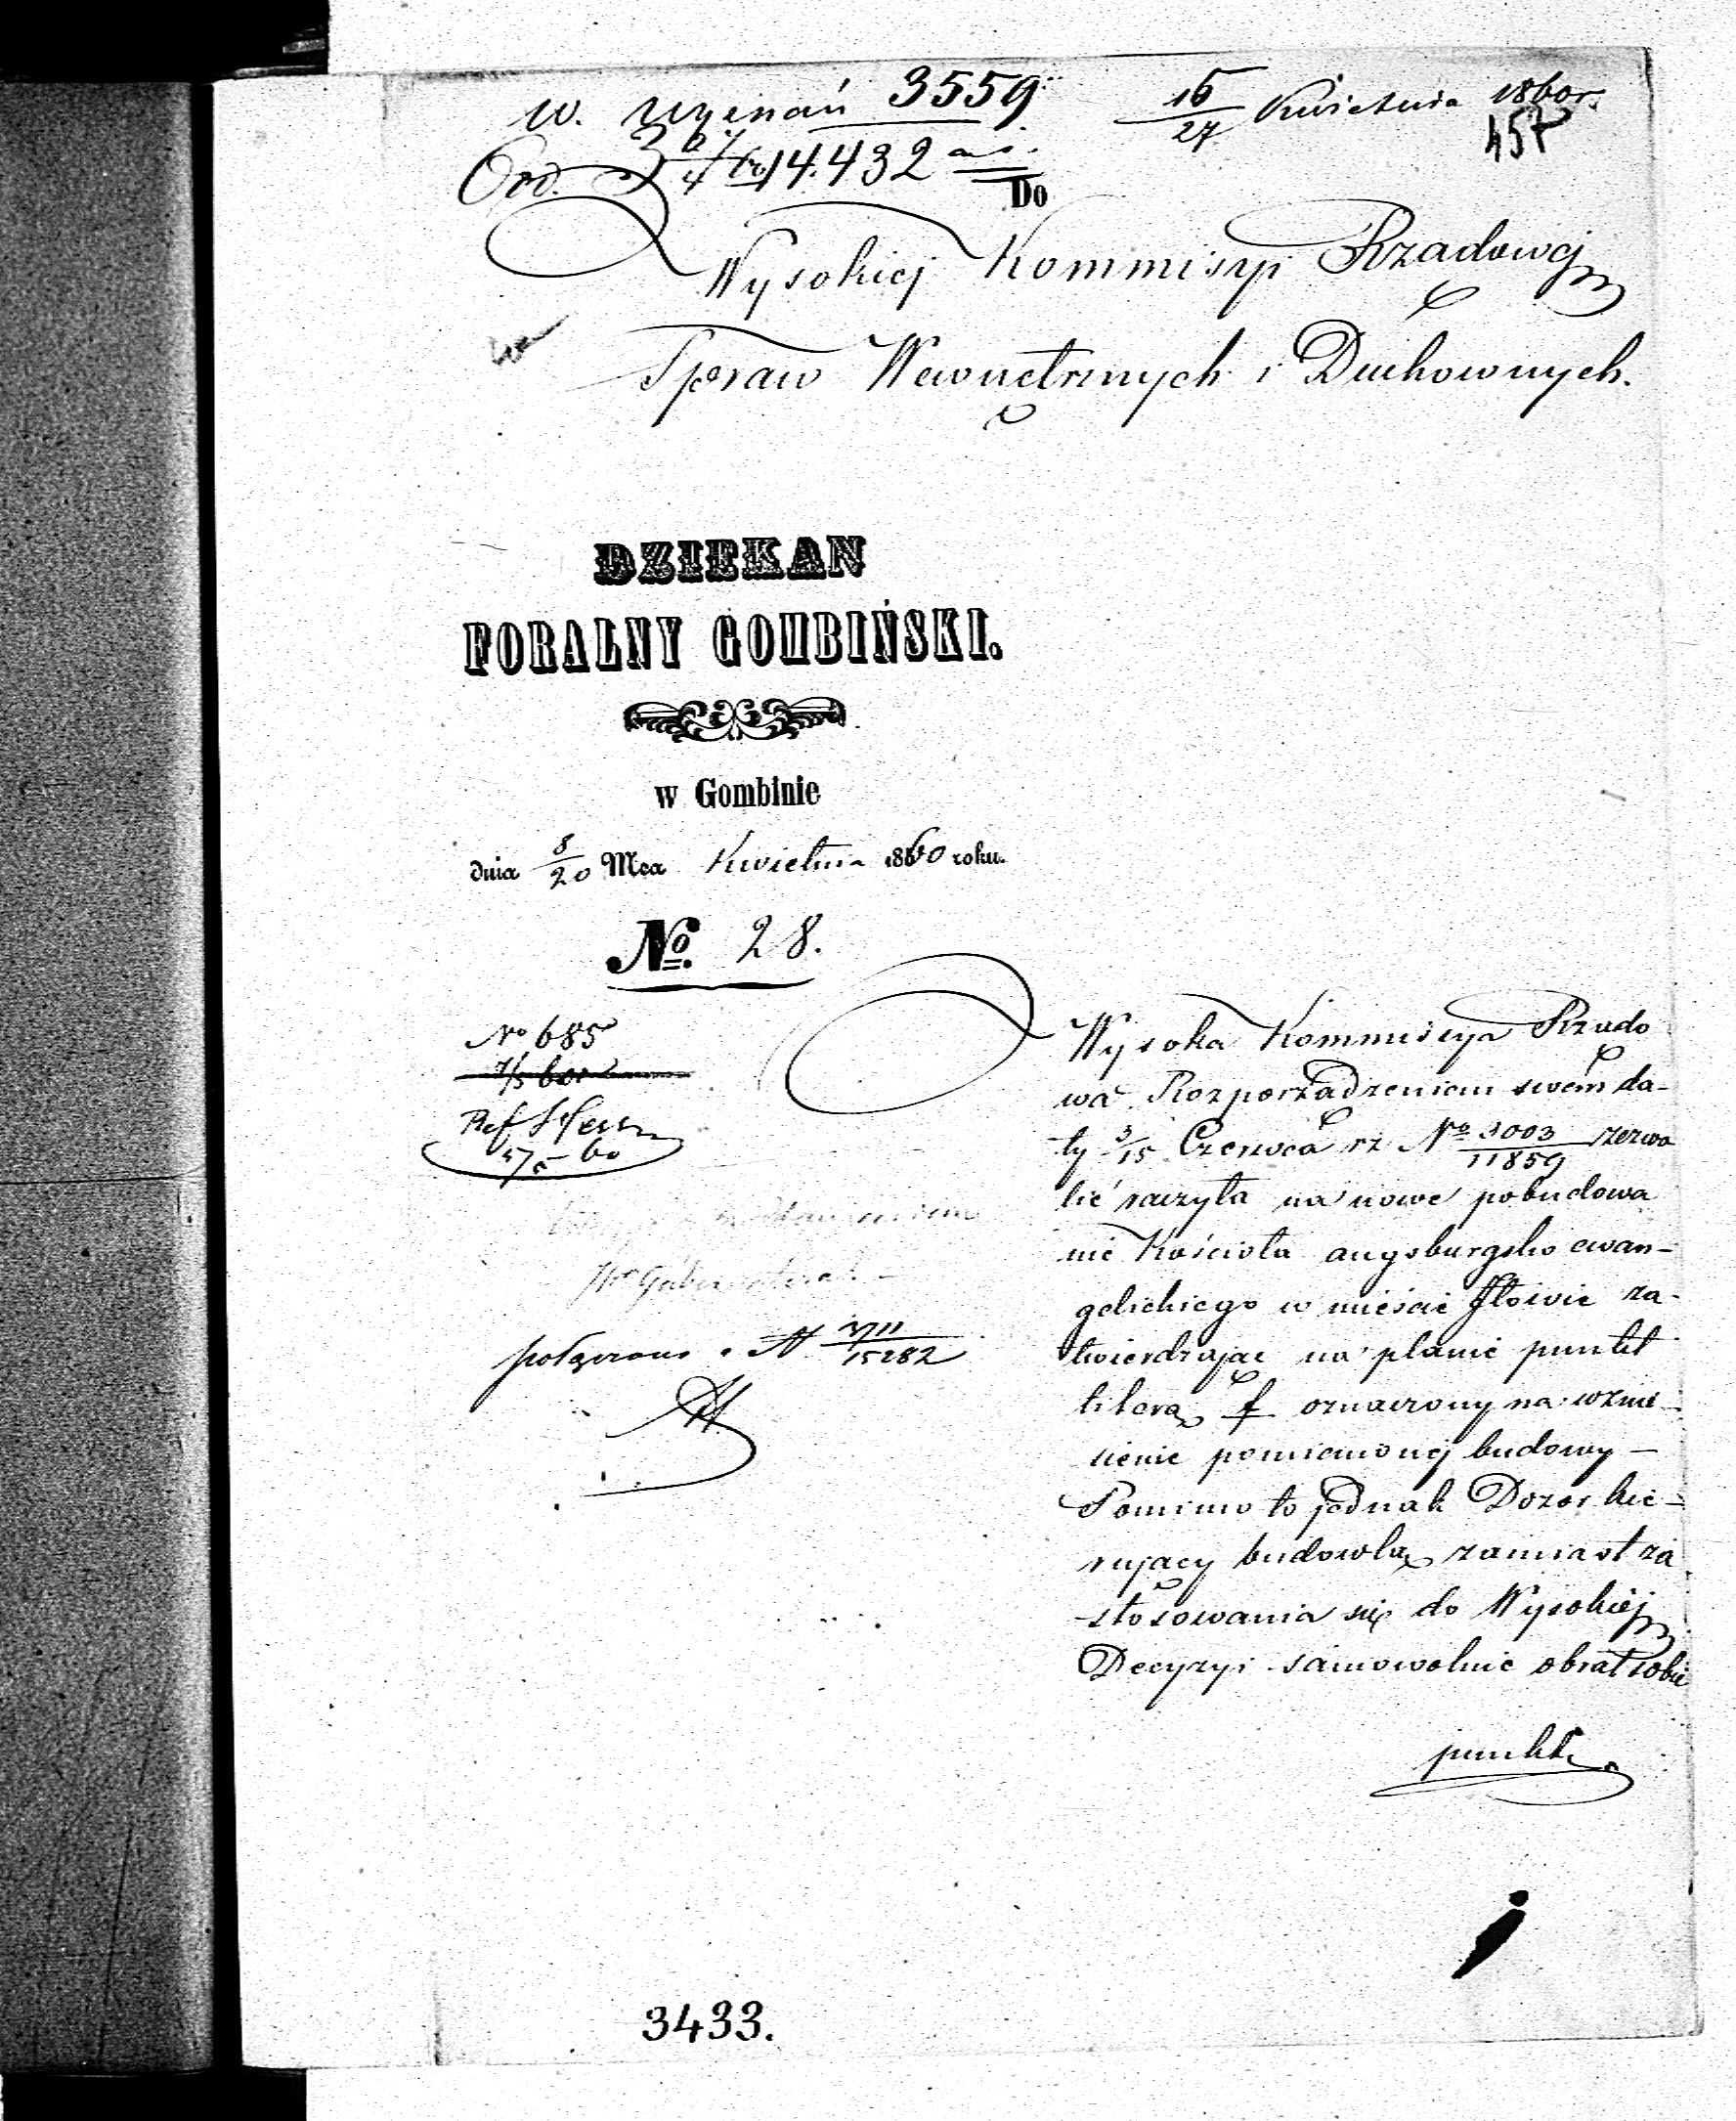 W. Wyznań 3559 15/27 Kwietnia 1860 r.
457
Ord. 14.432
Do
Wysokiej Kommisyi Rządowej
Spraw Wewnętrznych i Duchownych.
DZIEKAN
FORALNY GOMBIŃSKI.
w Gombinie
dnia 8/20 Mca Kwietnia 1860 roku.
No. 28.
No 685
Ref Hessn
5/5 60
Wysoka Kommisya Rządo
wa Rozporządzeniem swem da-
ty 3/15 Czerwca rz No 3003/11859 zezwo
lić raczyła na nowe pobudowa
nie Kościoła augsburgsko ewan-
gelickiego w mieście Iłowie za-
twierdzając na planie punkt
literą f oznaczony na wznie-
sienie pomienionej budowy –
Pomimo to jednak Dozór kie-
rujący budowlą zamiast za
stosowania się do Wysokiej
Decyzyi samowolnie obrał sobie
punkt
połączono z N 3711/15282
3433.